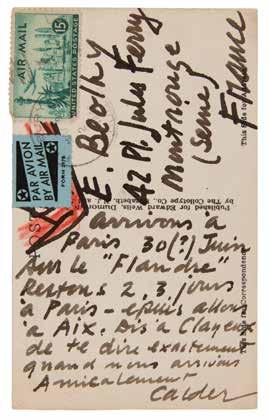 AIR MAIL
15¢
UNITED STATES POSTAGE
PAR AVION
BY AIR MAIL
FORM 2978
POST
E. Beothy
42 Pl. Jules Ferry
Montrouge
(Seine)
France
This side for
Published for Edward Wells, Dumont
by The Collotype Co., Elizabeth, N. J. and
This Side for Correspondence
Arrivons à
Paris 30(?) Juin
sur le "Flandre"
Restons 2 3 jours
à Paris - épuis allons
à Aix. Dis à Clayeux
de te dire exactement
quand nous arrivons
Amicalement
Calder